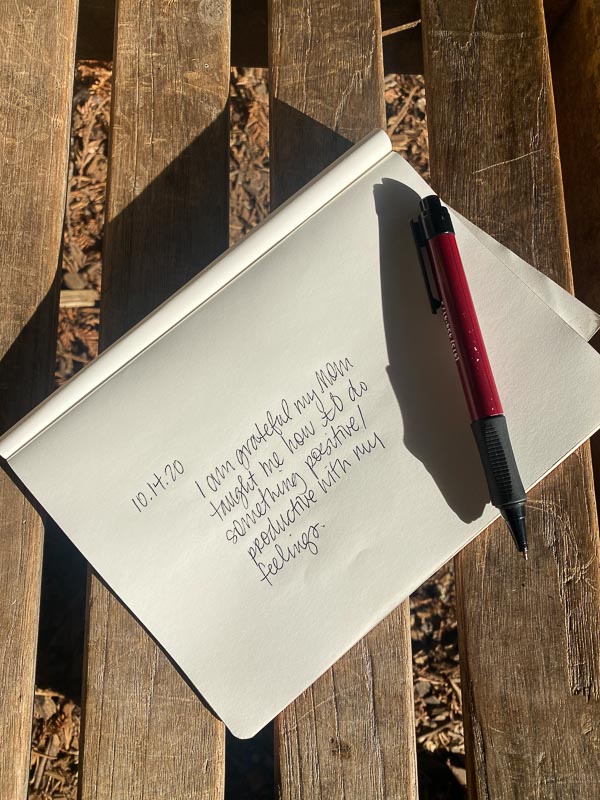 10.14.20
I am grateful my Mom
taught me how to do
something positive/
productive with my
feelings.